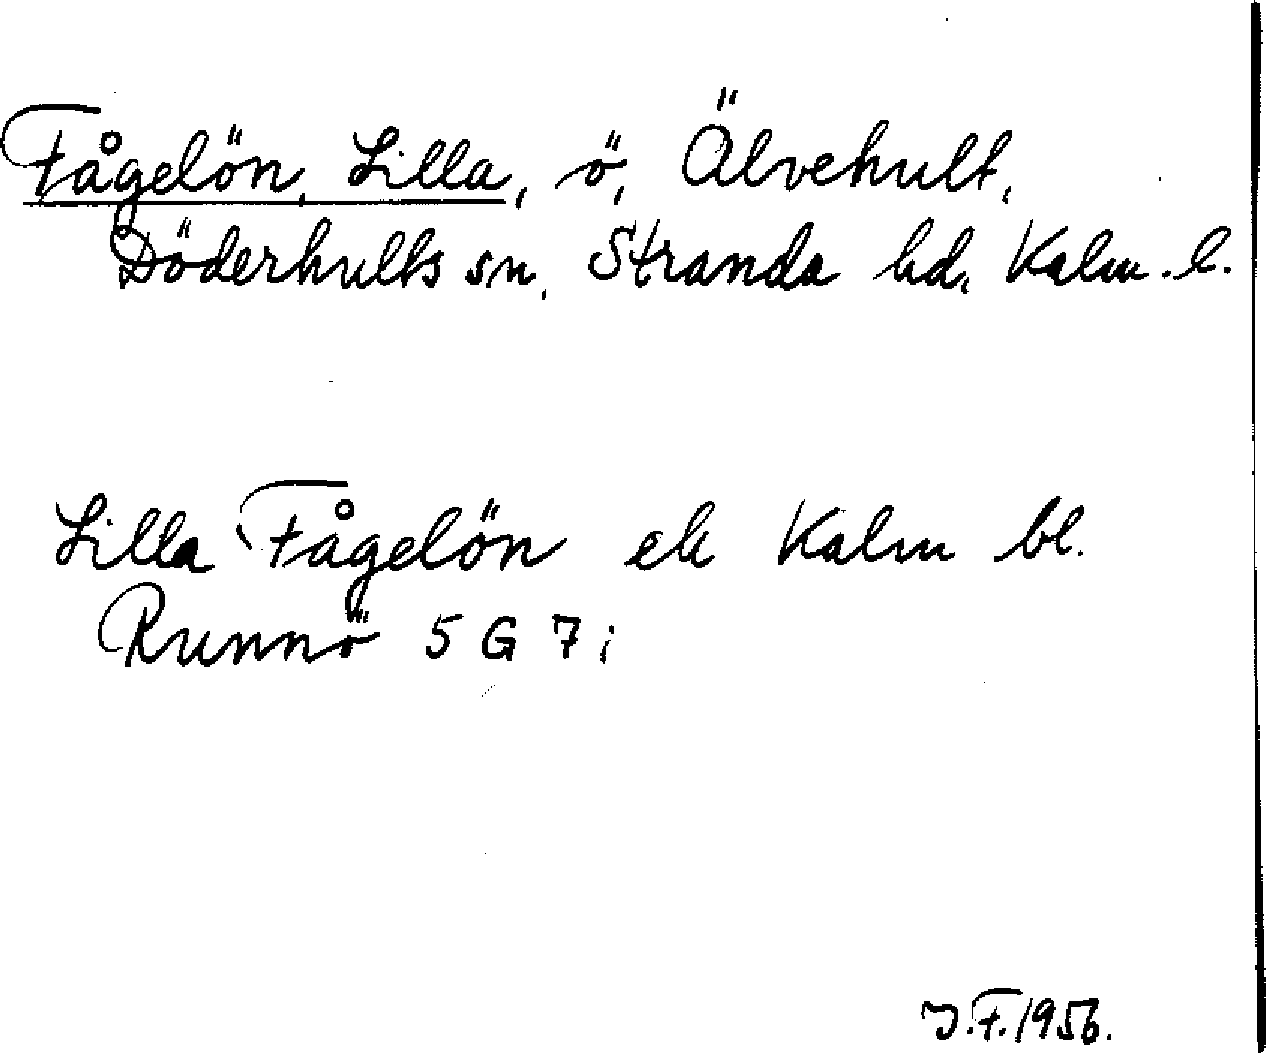 Fågelön, Lilla, ö, Älvehult,
Döderhults sn, Stranda hd, Kalm. l.
Lilla Fågelön ek Kalm bl.
Runnö 5 G 7 i
J.F. 1956.